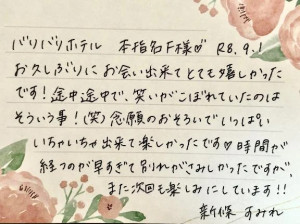 バリバリホテル 本指名F様♡ R8.9.1
お久しぶりにお会い出来てとても嬉しかった
です！途中途中で、笑いがこぼれていたのは
そういう事！(笑) 念願のおそろいでいっぱい
いちゃいちゃ出来て楽しかったです♥時間が
経つのが早すぎて別れがさみしかったですが、
また次回も楽しみにしています！！
新條 すみれ